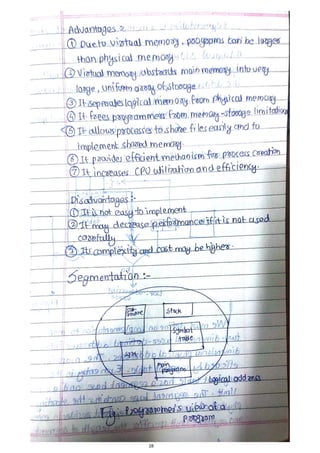 Advantages :-
① Due to virtual memory, programs can be larger
than physical memory
② Virtual memory abstracts main memory into very
large, uniform array of storage
③ It seprates logical memory from physical memory
④ It frees programmers from memory-storage limitations
⑤ It allows processes to share files easily and to
implement shared memory.
⑥ It provides efficient mechanism for process creation
⑦ It increases CPU utilization and efficiency.
Disadvantages :-
① It is not easy to implement
② It may decrease performance if it is not used
carefully
③ Its complexity and cost may be higher.
Segmentation :-
Stack
Symbol
table
main
programs
logical address
Fig: Programmer's view of a
program
28